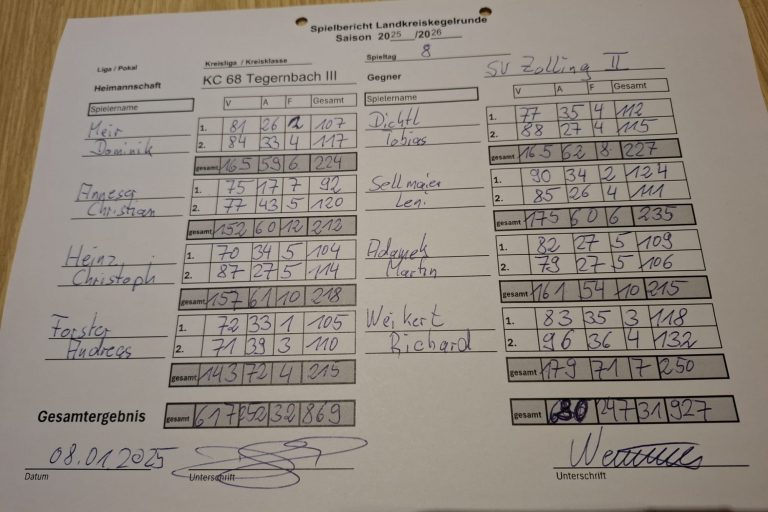 Spielbericht Landkreiskegelrunde
Saison 2025/2026
Liga / Pokal Kreisliga / Kreisklasse Spieltag 8
Heimannschaft KC 68 Tegernbach III Gegner SV Zolling II
Spielername V A F Gesamt Spielername V A F Gesamt
Meir 1. 81 26 2 107 Dichtl 1. 77 35 4 112
Dominik 2. 84 33 4 117 Tobias 2. 88 27 4 115
gesamt 165 59 6 224 gesamt 165 62 8 227
Anneser 1. 75 17 7 92 Sellmaier 1. 90 34 2 124
Christian 2. 77 43 5 120 Leni 2. 85 26 4 111
gesamt 152 60 12 212 gesamt 175 60 6 235
Heinz 1. 70 34 5 104 Adamek 1. 82 27 5 109
Christoph 2. 87 27 5 114 Martin 2. 79 27 5 106
gesamt 157 61 10 218 gesamt 161 54 10 215
Forster 1. 72 33 1 105 Weikert 1. 83 35 3 118
Andreas 2. 71 39 3 110 Richard 2. 96 36 4 132
gesamt 143 72 4 215 gesamt 179 71 7 250
Gesamtergebnis gesamt 617 252 32 869 gesamt 680 247 31 927
08.01.2025
Datum Unterschrift Unterschrift